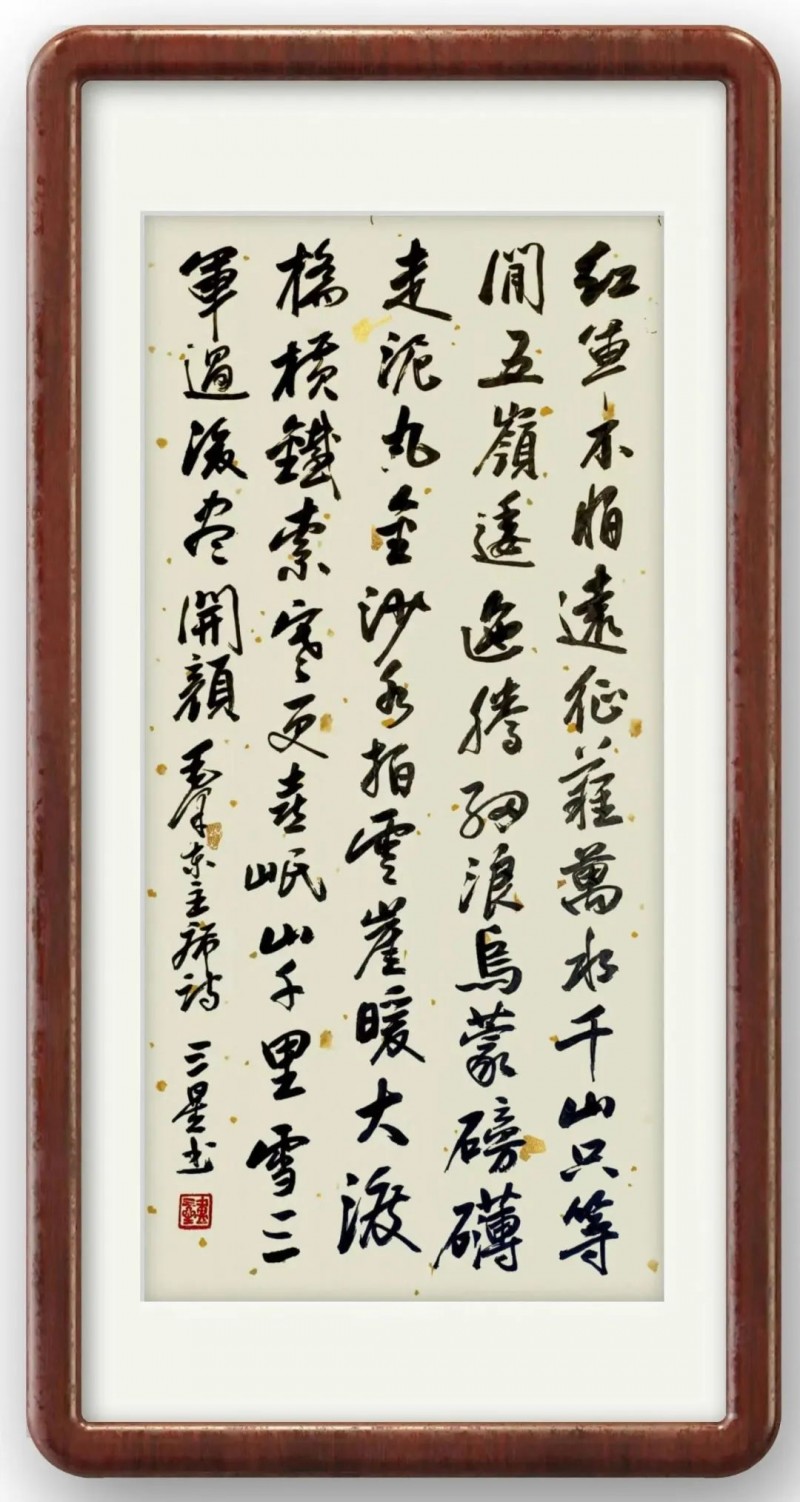 红軍不怕遠征難萬水千山只等
閒五嶺逶迤騰細浪烏蒙磅礴
走泥丸金沙水拍雲崖暖大渡
橋橫鐵索寒更喜岷山千里雪三
軍過後尽開顏 毛澤東主席詩 三星书